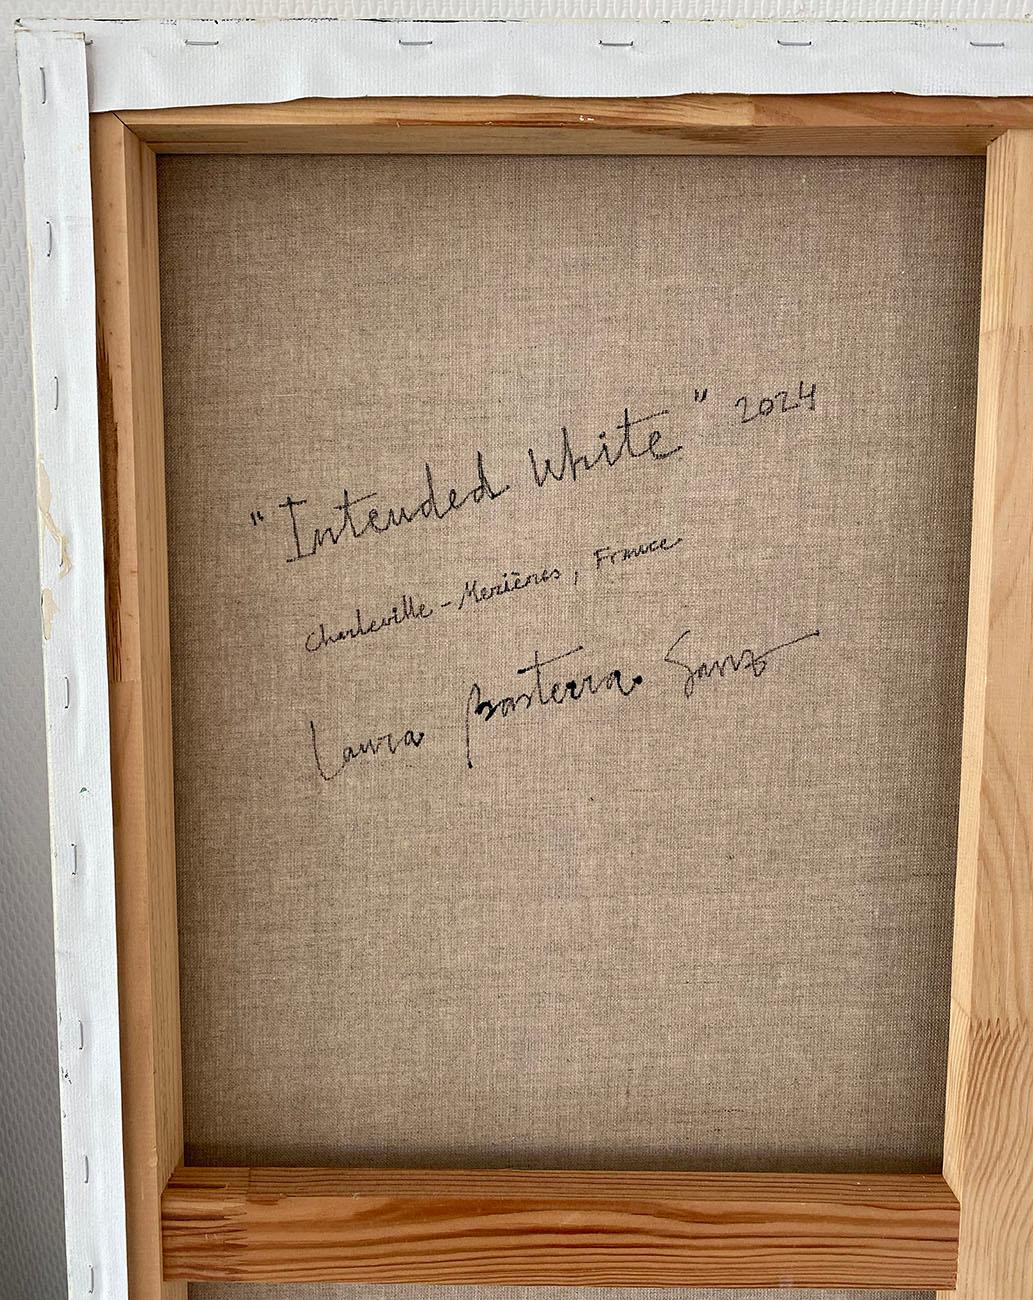 "Intended White" 2024
Charleville-Mezières, France
Laura Basterra Sanz